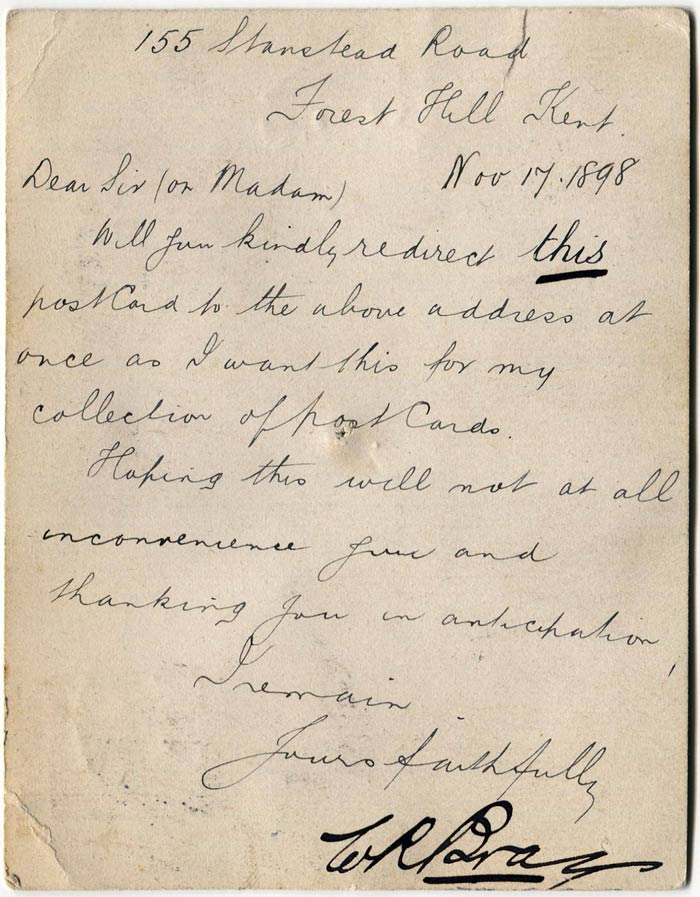 155 Stanstead Road
Forest Hill Kent.
Nov 17. 1898
Dear Sir (or Madam)
Will you kindly redirect this
post Card to the above address at
once as I want this for my
collection of post Cards.
Hoping this will not at all
inconvenience you and
thanking you in anticipation,
I remain
Yours faithfully
W R Bray